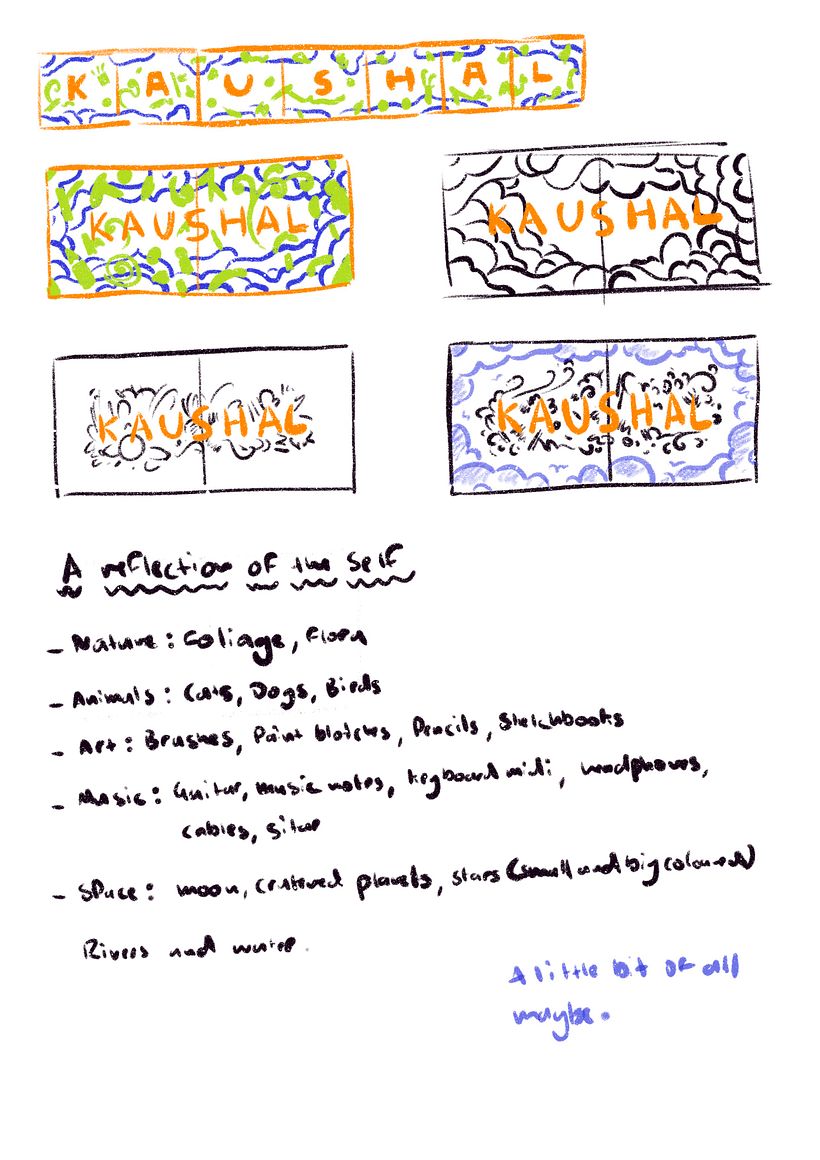 K A U S H A L
KAUSHAL
KAUSHAL
KAUSHAL
KAUSHAL
A reflection of the self
- Nature : Foliage, Flora
- Animals : Cats, Dogs, Birds
- Art : Brushes, Paint blotches, Pencils, Sketchbooks
- Music : Guitar, music notes, keyboard midi, headphones,
cables, sitar
- Space : moon, cratered planets, stars (small and big coloured)
Rivers and water.
A little bit of all
maybe.